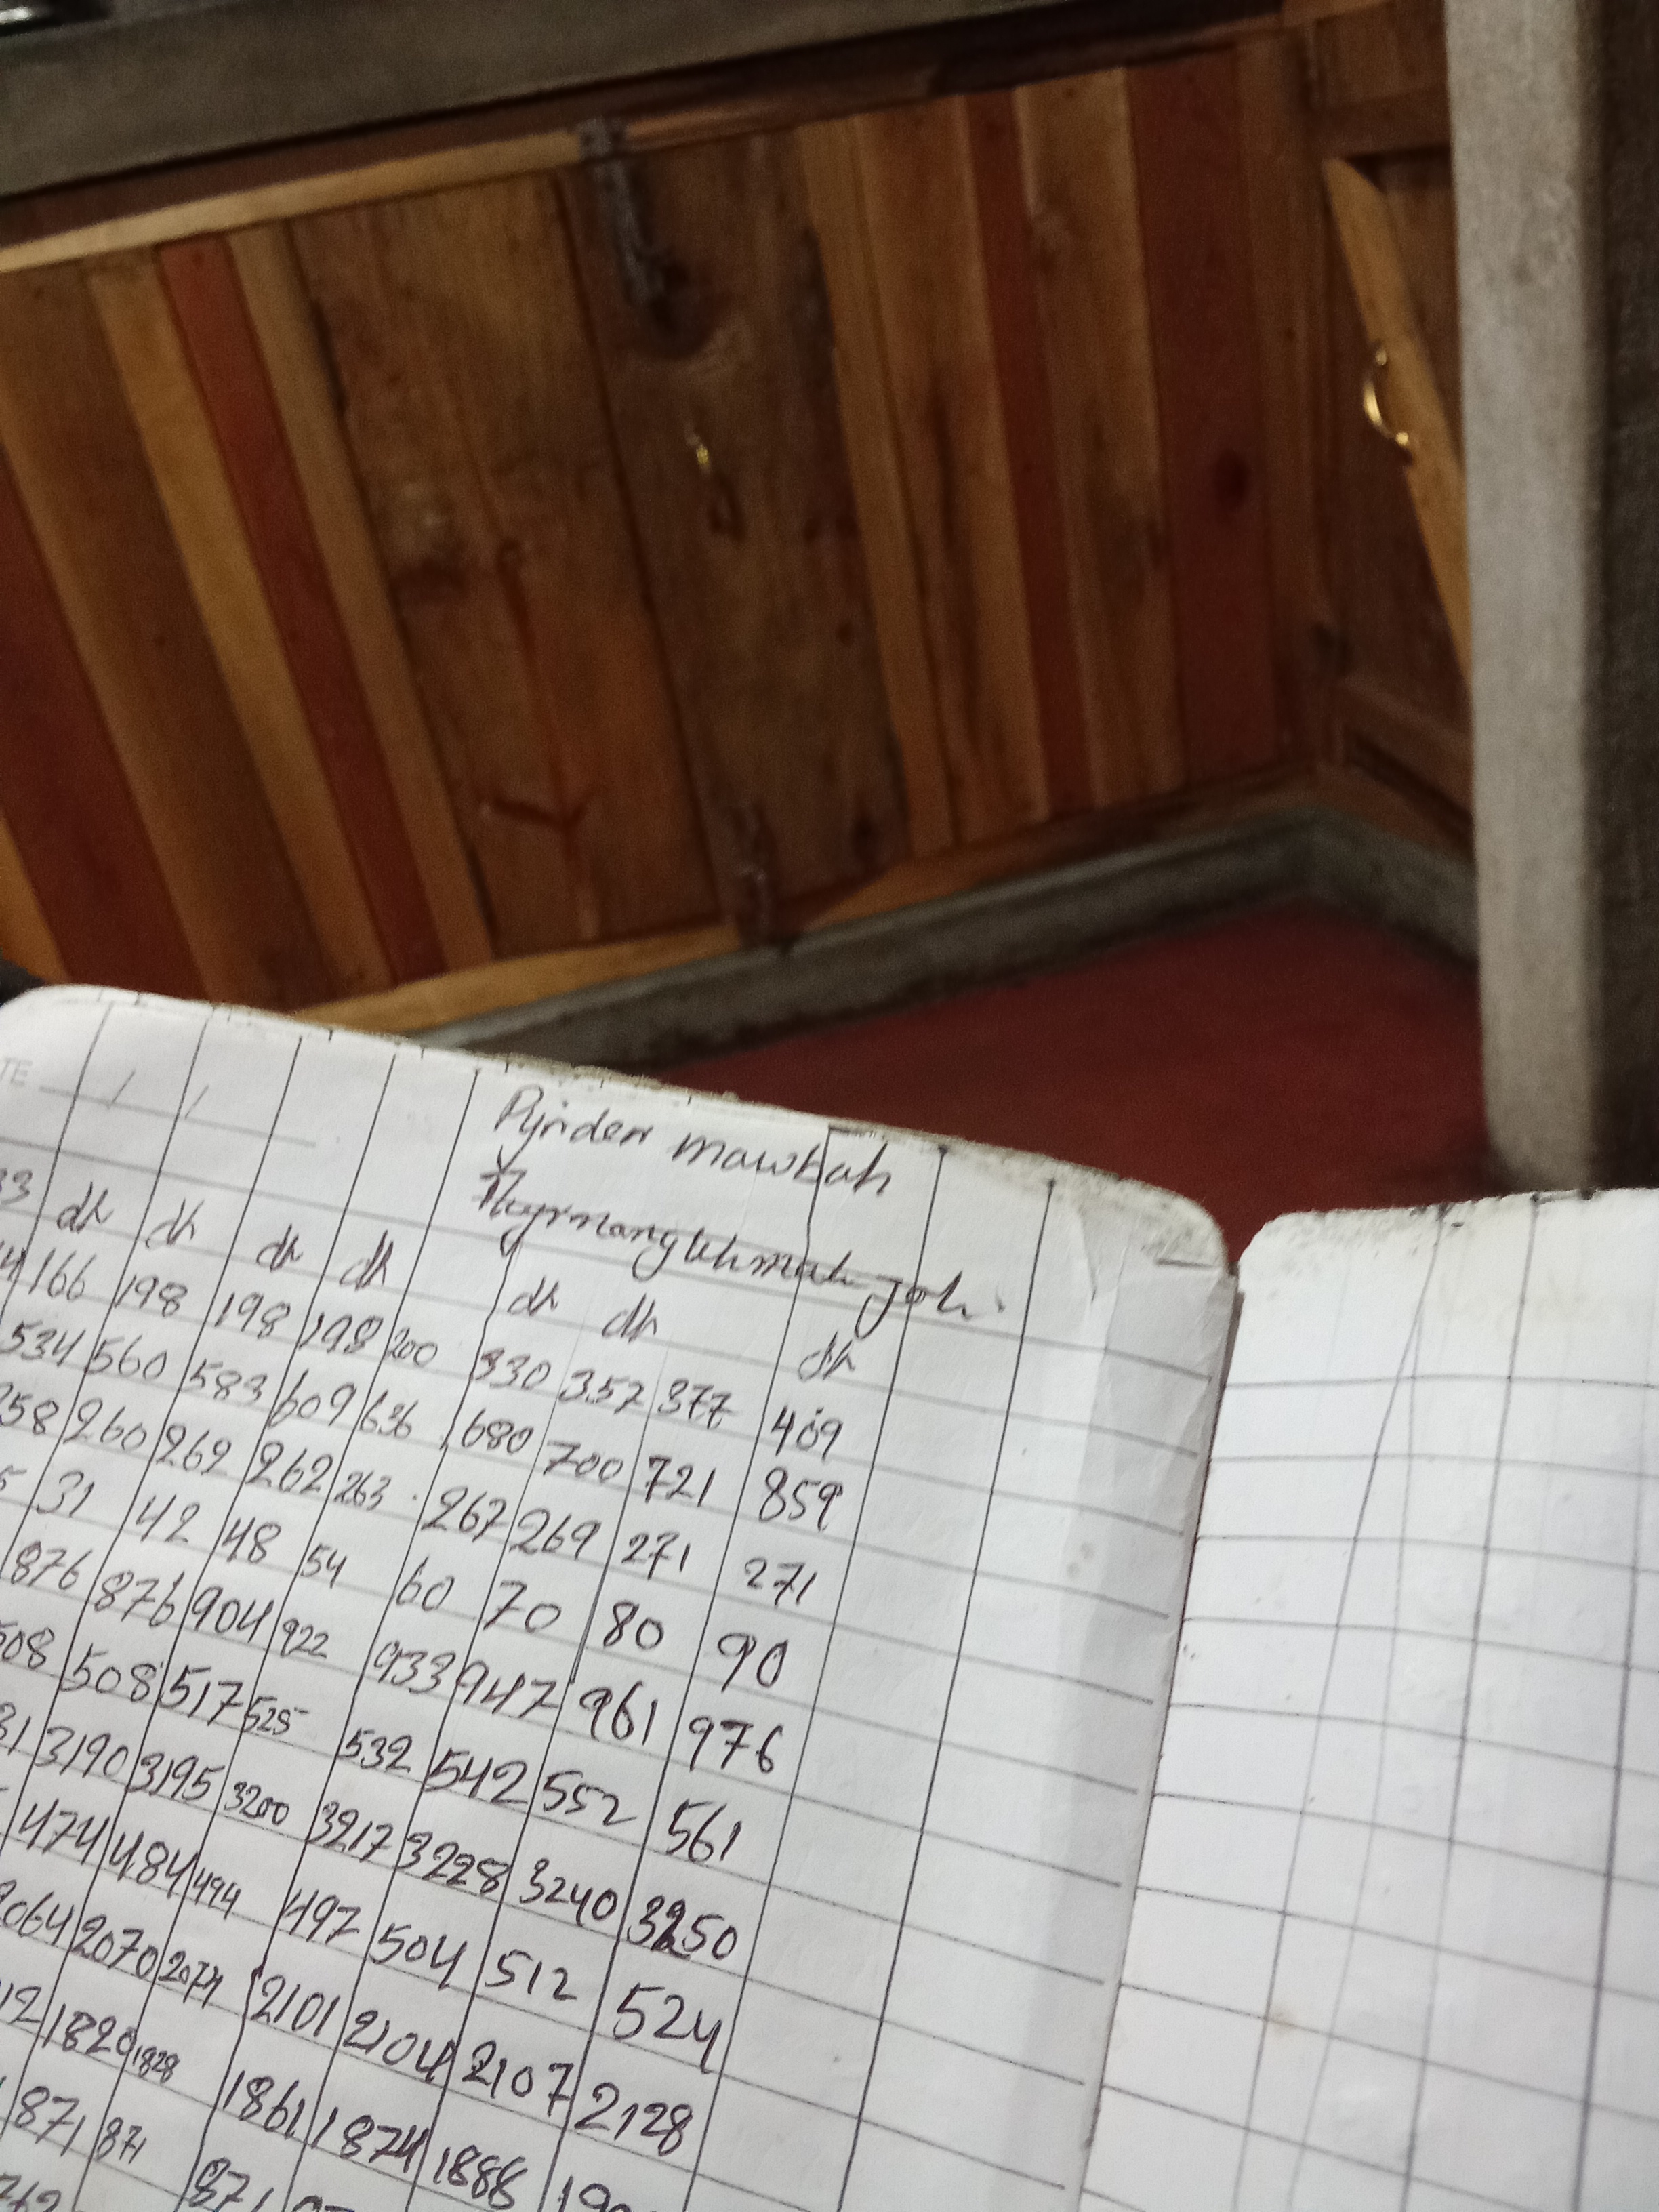 TE / /
Pynden mawbah
33 dh dh dh dh
dh dh dh
166 198 198 198 200 330 357 377 409
534 560 583 609 636 680 700 721 859
258 260 262 262 263 267 269 271 271
31 42 48 54 60 70 80 90
876 876 904 922 933 947 961 976
508 508 517 525 532 542 552 561
3190 3195 3200 3217 3228 3240 3250
474 484 494 497 504 512 524
2064 2070 2074 2101 2104 2107 2128
1820 1828 1861 1874 1888
871 871 871